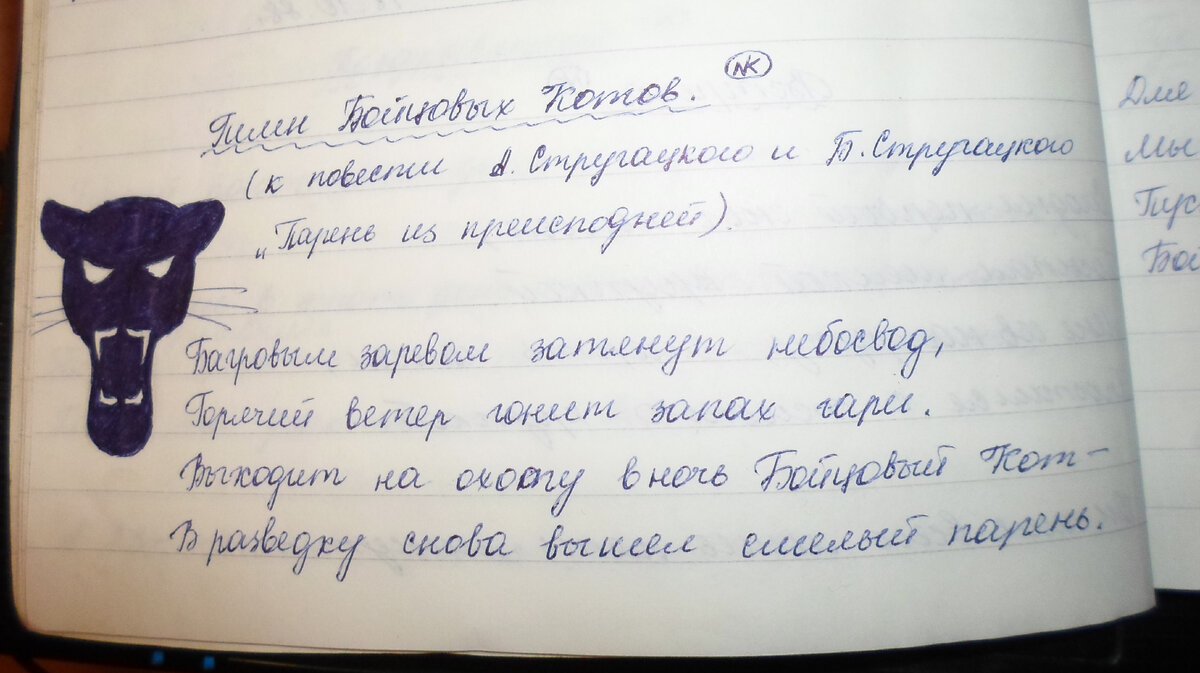 Гимн Бойцовых Котов. NK
(к повести А. Стругацкого и Б. Стругацкого
„Парень из преисподней).
Багровым заревом затянут небосвод,
Горячий ветер гонит запах гари.
Выходит на охоту в ночь Бойцовый Кот –
В разведку снова вышел смелый парень.
Для
Мы
Пус
Бой